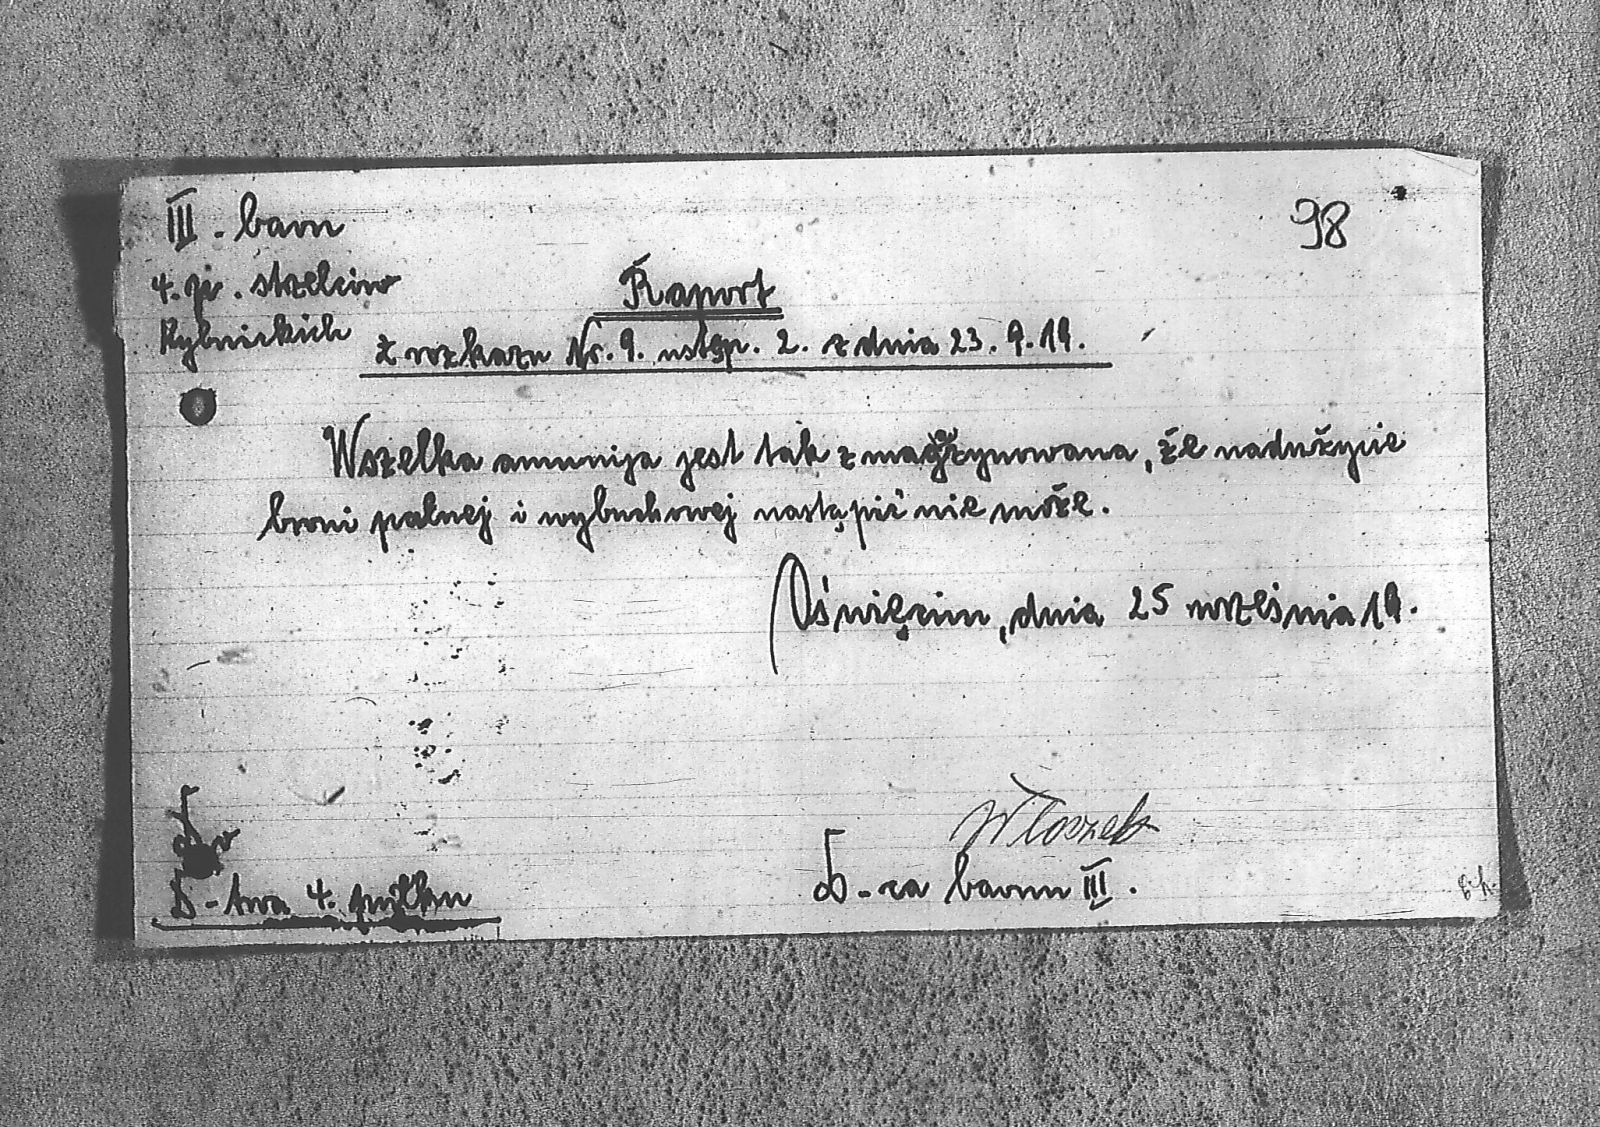 III. baon
98
4. p. strzelców
Raport
Rybnickich
z rozkazu Nr. 9. ustęp. 2. z dnia 23. 9. 19.
Wszelka amunija jest tak zmagazynowana, że nadużycie
broni palnej i wybuchowej nastąpić nie może.
Oświęcim, dnia 25 września 19.
Włoszek
D-ca baonu III.
D-twa 4. pułku